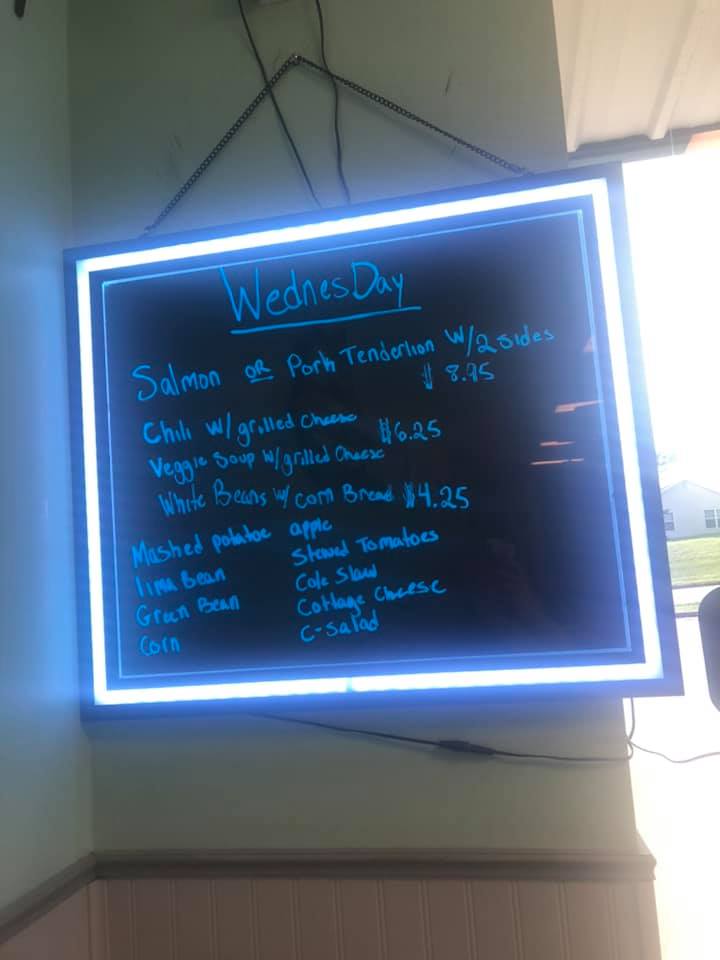 WednesDay
Salmon OR Pork Tenderlion W/2 sides
$ 8.95
Chili w/ grilled Cheese $6.25
Veggie Soup w/grilled Cheese
White Beans w/ corn Bread $4.25
Mashed potatoe apple
lima Bean Stewed Tomatoes
Green Bean Cole Slaw
Corn Cottage Cheese
C-salad